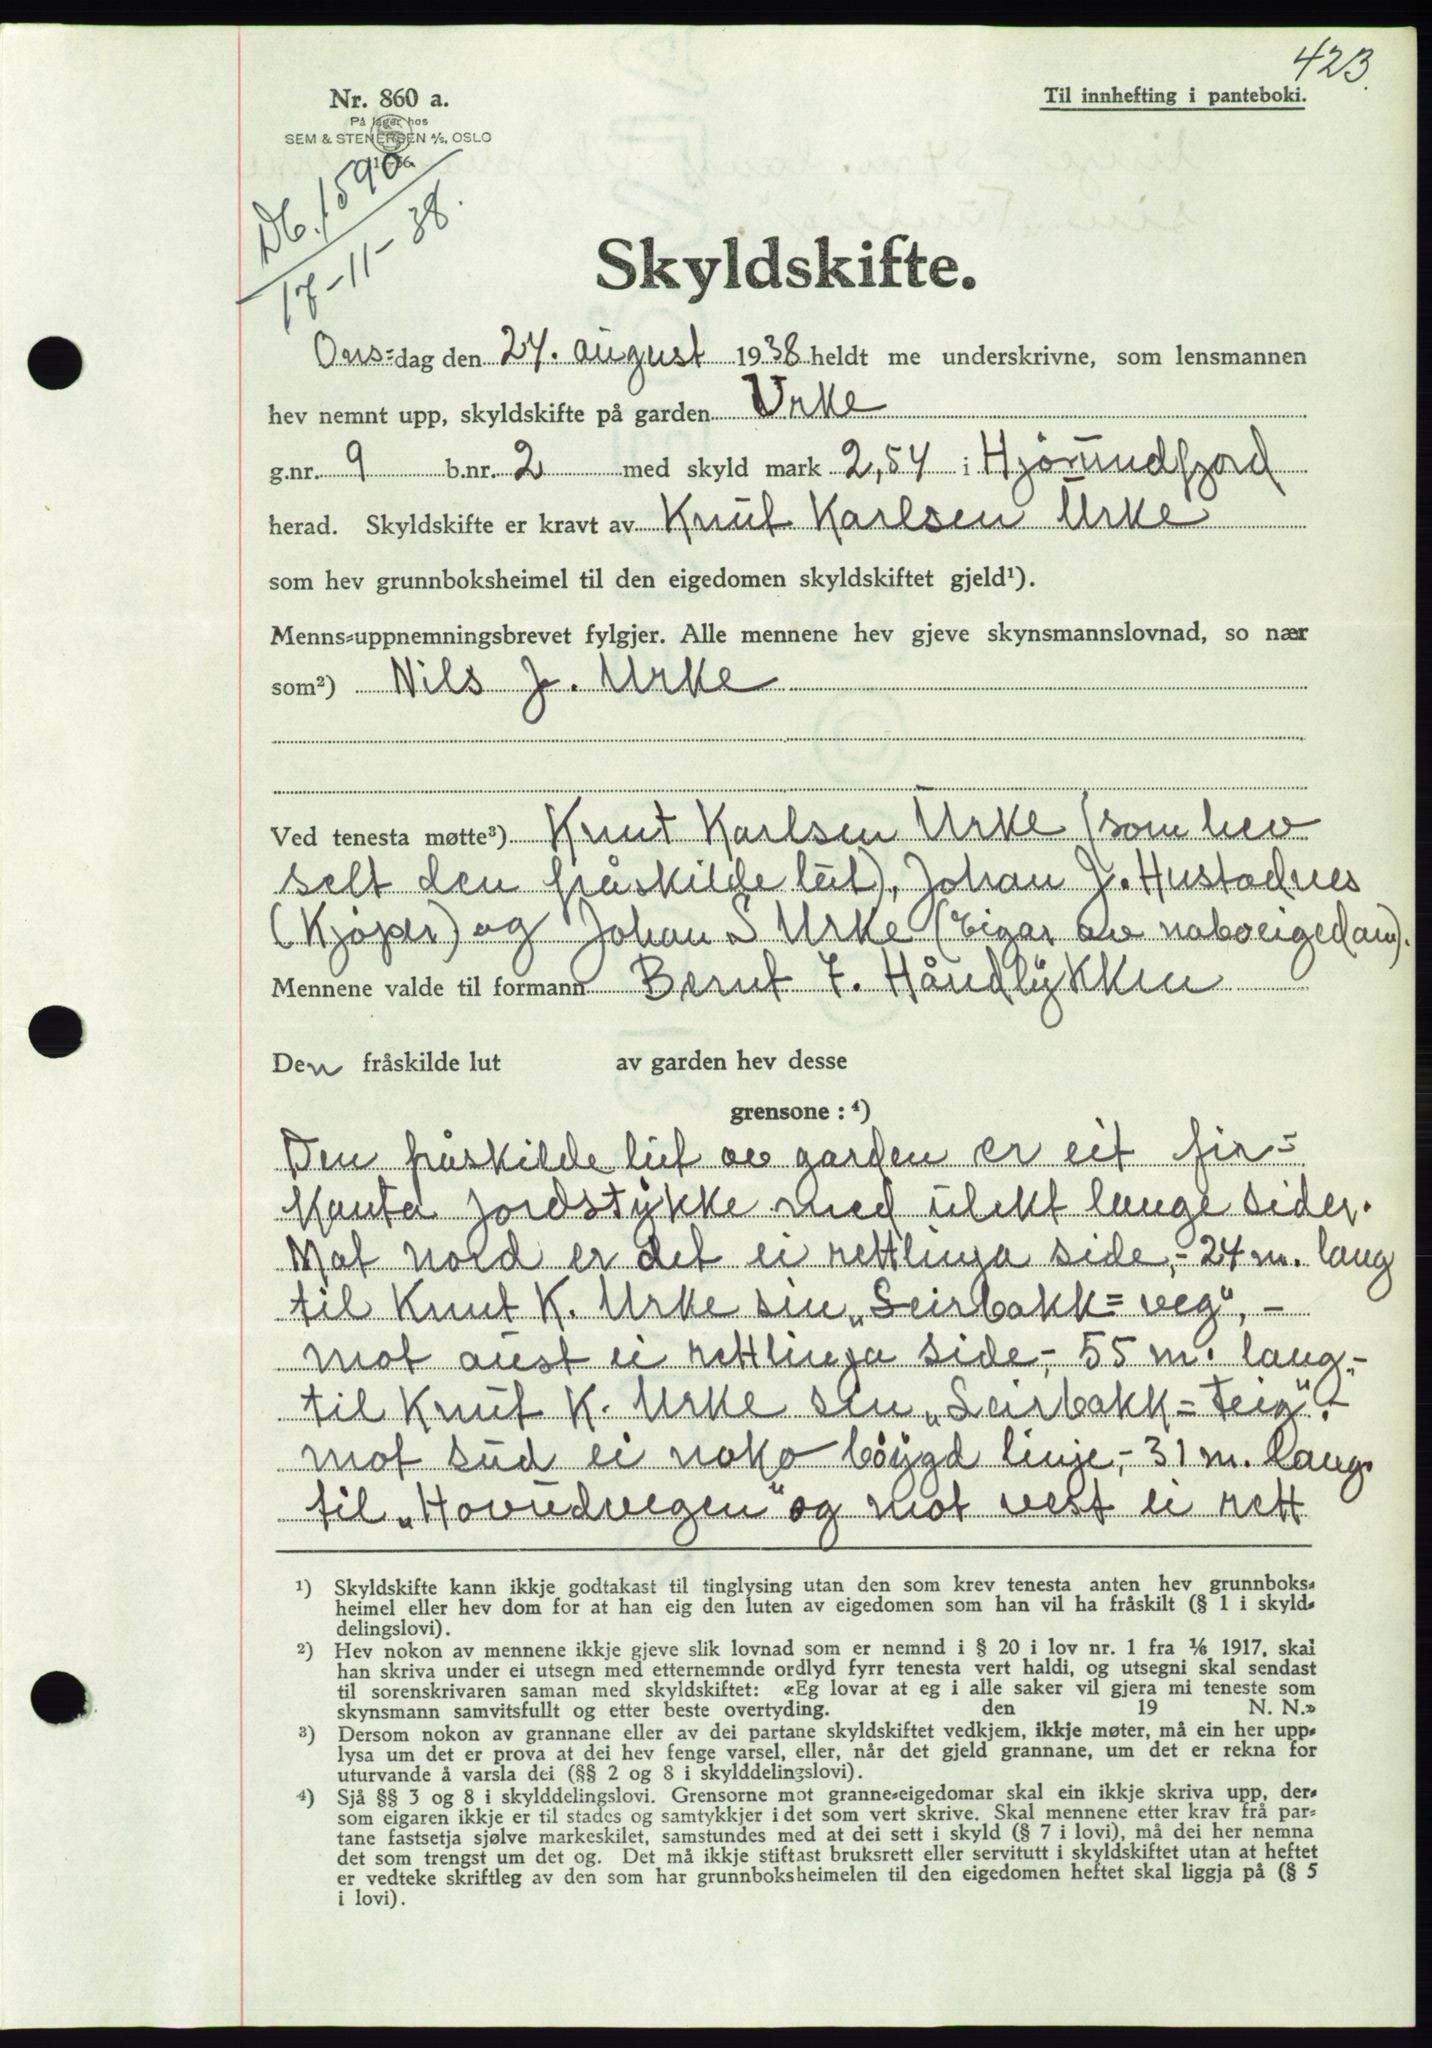 423.
Nr. 860 a.
Til innhefting i panteboki.
På lager hos
SEM & STENERSEN A/S, OSLO
Db. 1590
17-11-38.
Skyldskifte.
Ons=dag den 24. august 1938 heldt me underskrivne, som lensmannen
hev nemnt upp, skyldskifte på garden Urke
g.nr. 9 b.nr. 2 med skyld mark 2,54 i Hjørundfjord
herad. Skyldskifte er kravt av Knut Karlsen Urke
som hev grunnboksheimel til den eigedomen skyldskiftet gjeld¹).
Menns=uppnemningsbrevet fylgjer. Alle mennene hev gjeve skynsmannslovnad, so nær
som²) Nils J. Urke
Ved tenesta møtte³) Knut Karlsen Urke (som hev
selt den fråskilde lut), Johan J. Hustadnes
(Kjøper) og Johan S Urke (Eigar av naboeigedom).
Mennene valde til formann Bernt F. Håndlykken
Den fråskilde lut av garden hev desse
grensone : ⁴)
Den fråskilde lut av garden er eit fir=
kanta jordstykke med ulekt lange sider.
Mot nord er det ei rettlinja side,- 24 m. lang
til Knut K. Urke sin „Seirbakk=veg“, -
mot aust ei rettlinja side,- 55 m. lang,-
til Knut K. Urke sin „Seirbakk=teig“.-
mot sud ei noko bøygd linje,- 31 m. lang.
til „Hovudvegen“ og mot vest ei rett
¹) Skyldskifte kann ikkje godtakast til tinglysing utan den som krev tenesta anten hev grunnboks=
heimel eller hev dom for at han eig den luten av eigedomen som han vil ha fråskilt (§ 1 i skyld=
delingslovi).
²) Hev nokon av mennene ikkje gjeve slik lovnad som er nemnd i § 20 i lov nr. 1 fra 1/6 1917, skal
han skriva under ei utsegn med etternemnde ordlyd fyrr tenesta vert haldi, og utsegni skal sendast
til sorenskrivaren saman med skyldskiftet: «Eg lovar at eg i alle saker vil gjera mi teneste som
skynsmann samvitsfullt og etter beste overtyding. den 19 N. N.»
³) Dersom nokon av grannane eller av dei partane skyldskiftet vedkjem, ikkje møter, må ein her upp=
lysa um det er prova at dei hev fenge varsel, eller, når det gjeld grannane, um det er rekna for
uturvande å varsla dei (§§ 2 og 8 i skylddelingslovi).
⁴) Sjå §§ 3 og 8 i skylddelingslovi. Grensorne mot granne=eigedomar skal ein ikkje skriva upp, der=
som eigaren ikkje er til stades og samtykkjer i det som vert skrive. Skal mennene etter krav frå par=
tane fastsetja sjølve markeskilet, samstundes med at dei sett i skyld (§ 7 i lovi), må dei her nemna
det som trengst um det og. Det må ikkje stiftast bruksrett eller servitutt i skyldskiftet utan at heftet
er vedteke skriftleg av den som har grunnboksheimelen til den eigedomen heftet skal liggja på (§ 5
i lovi).